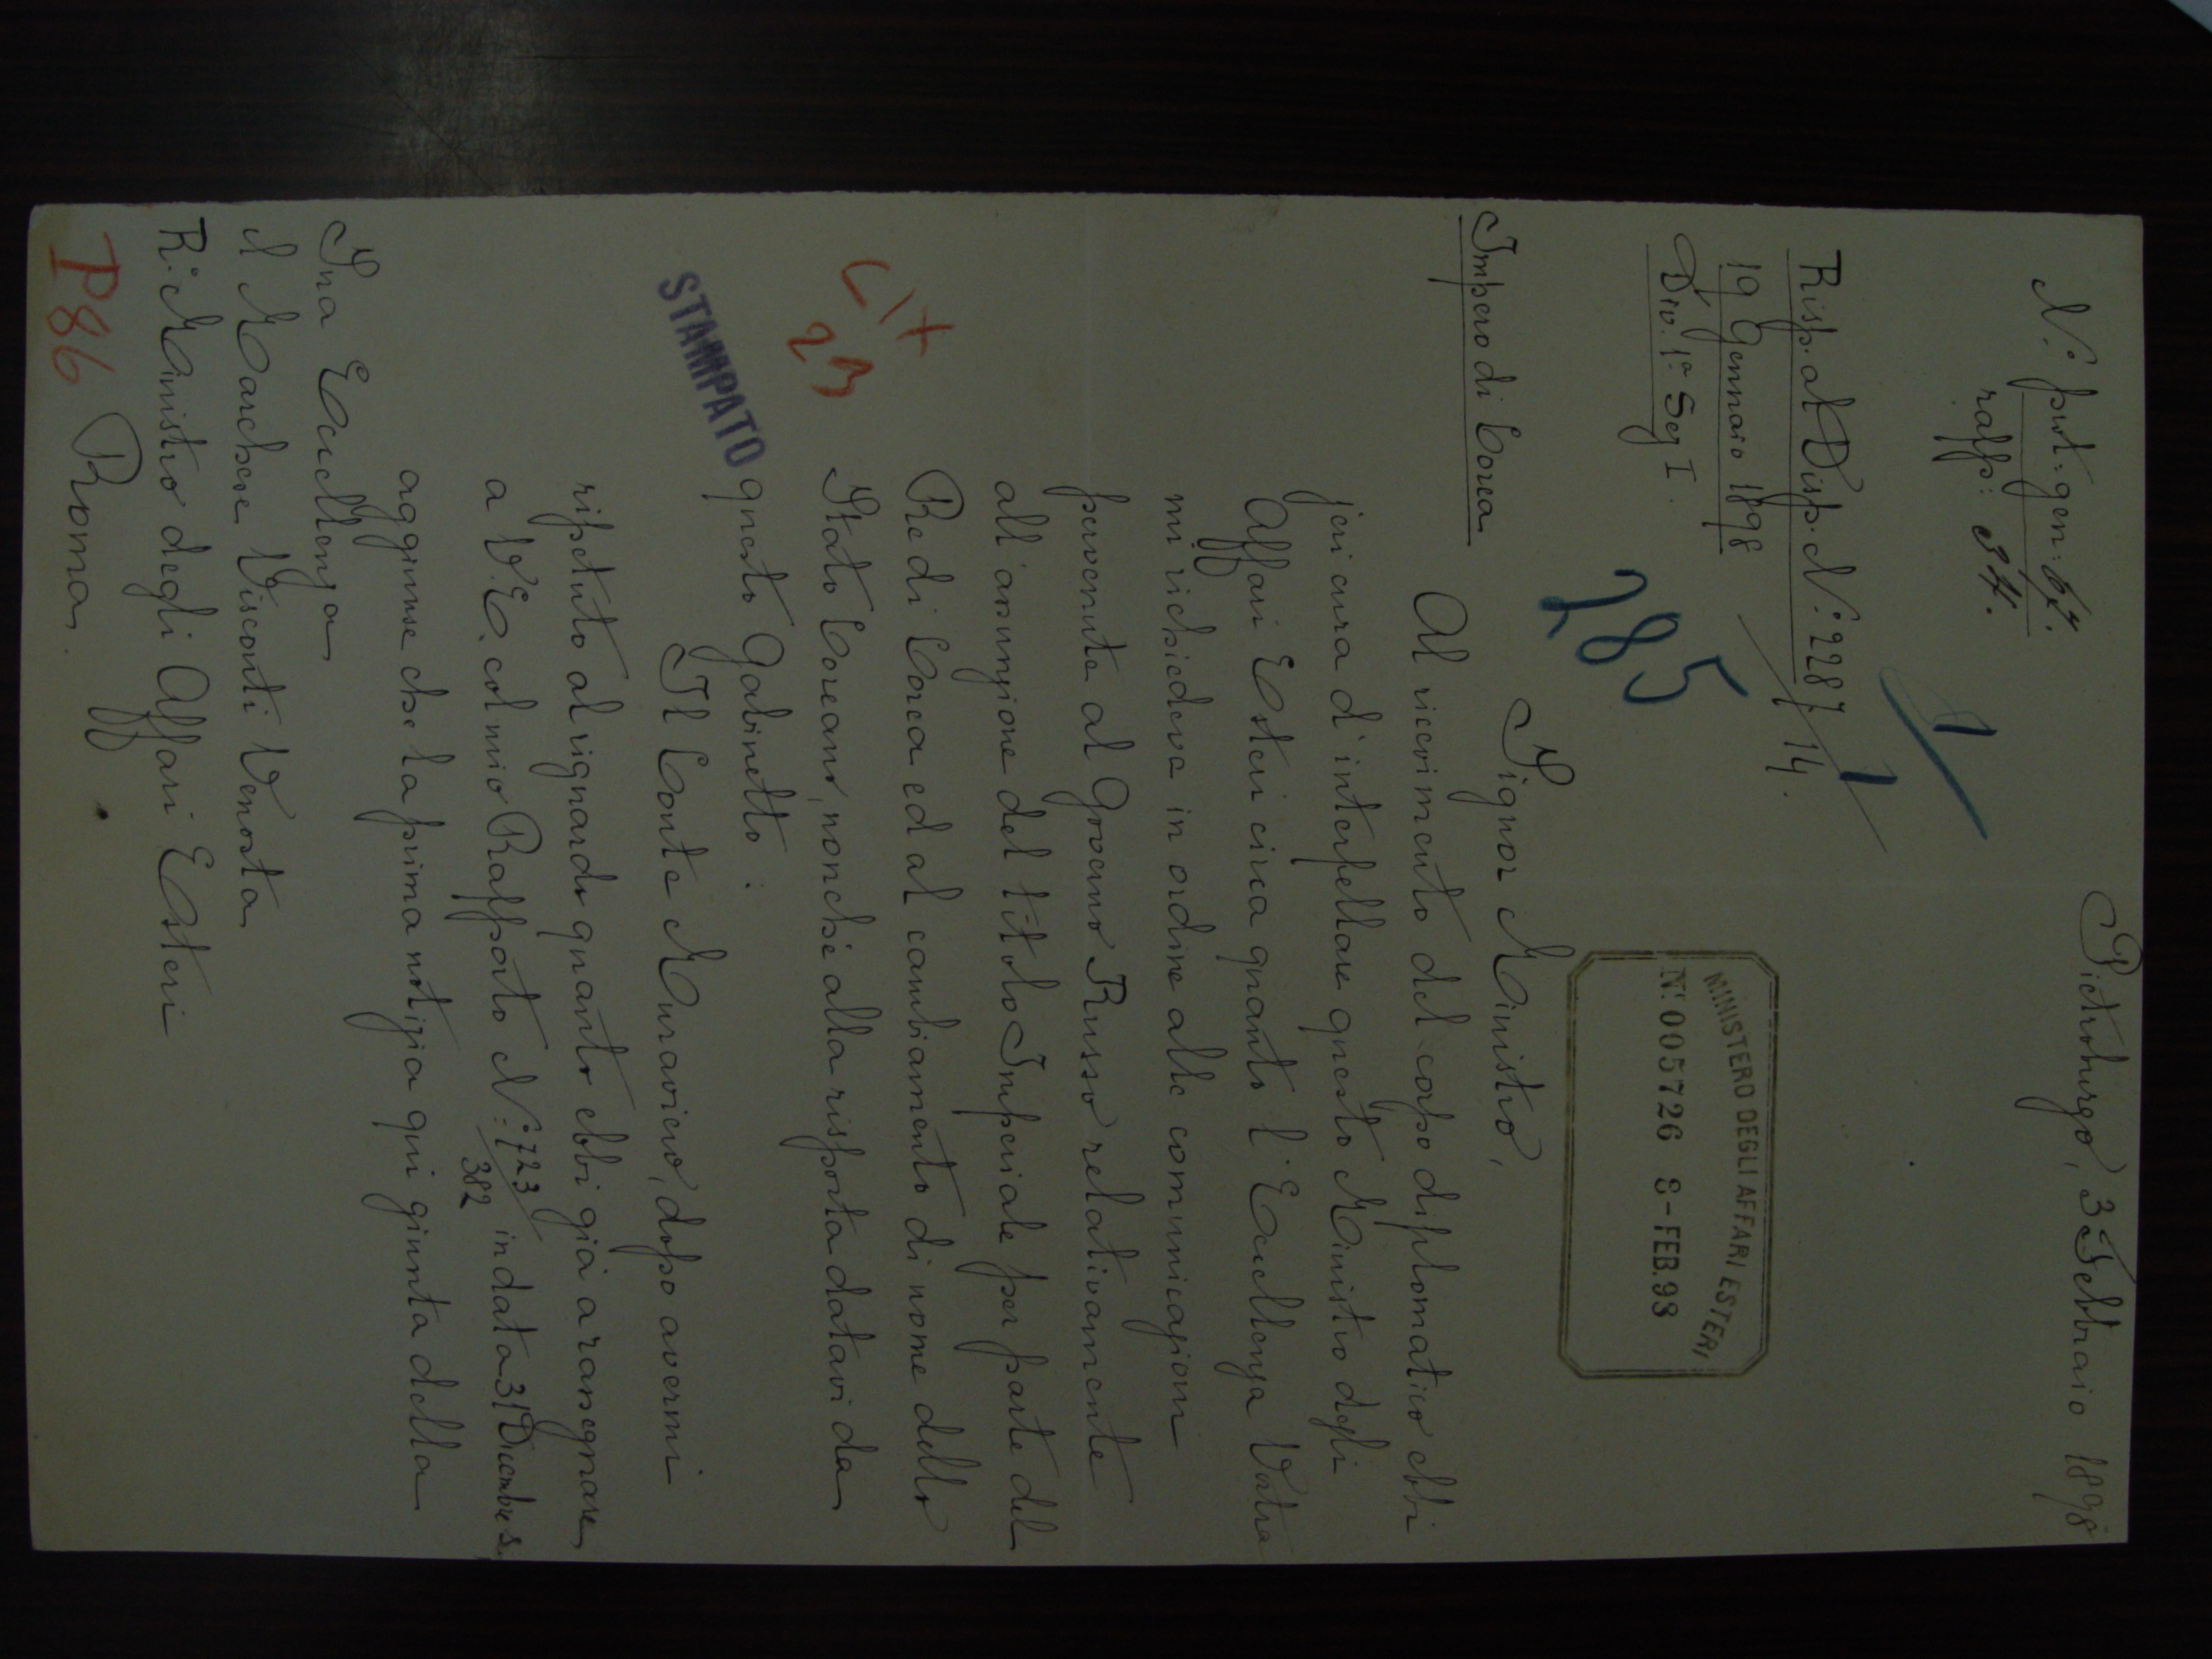 Pietroburgo, 3 Febbraio 1898
N.° prot. gen: 64.
rapp: 34.
Risp. al Disp. N.: 2287/14.
19 Gennaio 1898
Div. 1a Sez I.
1
1
285
MINISTERO DEGLI AFFARI ESTERI
N.° 005726 8-FEB.98
Impero di Corea
Signor Ministro,
Al ricevimento del corpo diplomatico ebbi
jeri cura d'interpellare questo Ministro degli
Affari Esteri circa quanto l'Eccellenza Vostra
mi richiedeva in ordine alle comunicazioni
pervenute al Governo Russo relativamente
all'assunzione del titolo Imperiale per parte del
Re di Corea ed al cambiamento di nome dello
Stato Coreano, nonchè alla risposta datavi da
questo Gabinetto.
23
STAMPATO
Il Conte Muraview, dopo avermi
ripetuto al riguardo quanto ebbi già a rassegnare
a V. E. col mio Rapporto N: 723/382 in data 31 Dicembre s.
aggiunse che la prima notizia qui giunta della
Sua Eccellenza
il Marchese Visconti Venosta
R.° Ministro degli Affari Esteri
Roma.
P86